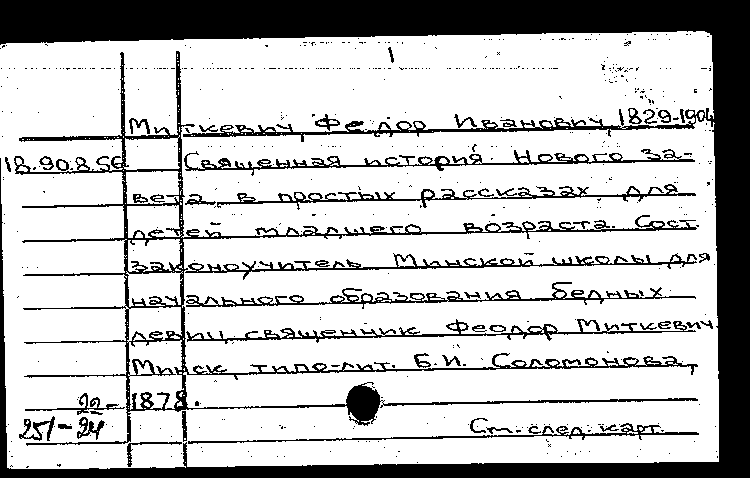 1
Миткевич, Федор Иванович, 1829-1904
18.90.8.56 Священная история Нового За-
вета в простых рассказах для
детей младшего возраста. Сост.
законоучитель Минской школы для
начального образования бедных
девиц, священник Феодор Миткевич.
Минск, типо-лит. Б.И. Соломонова,
1878.
22-
251-24
См. след. карт.